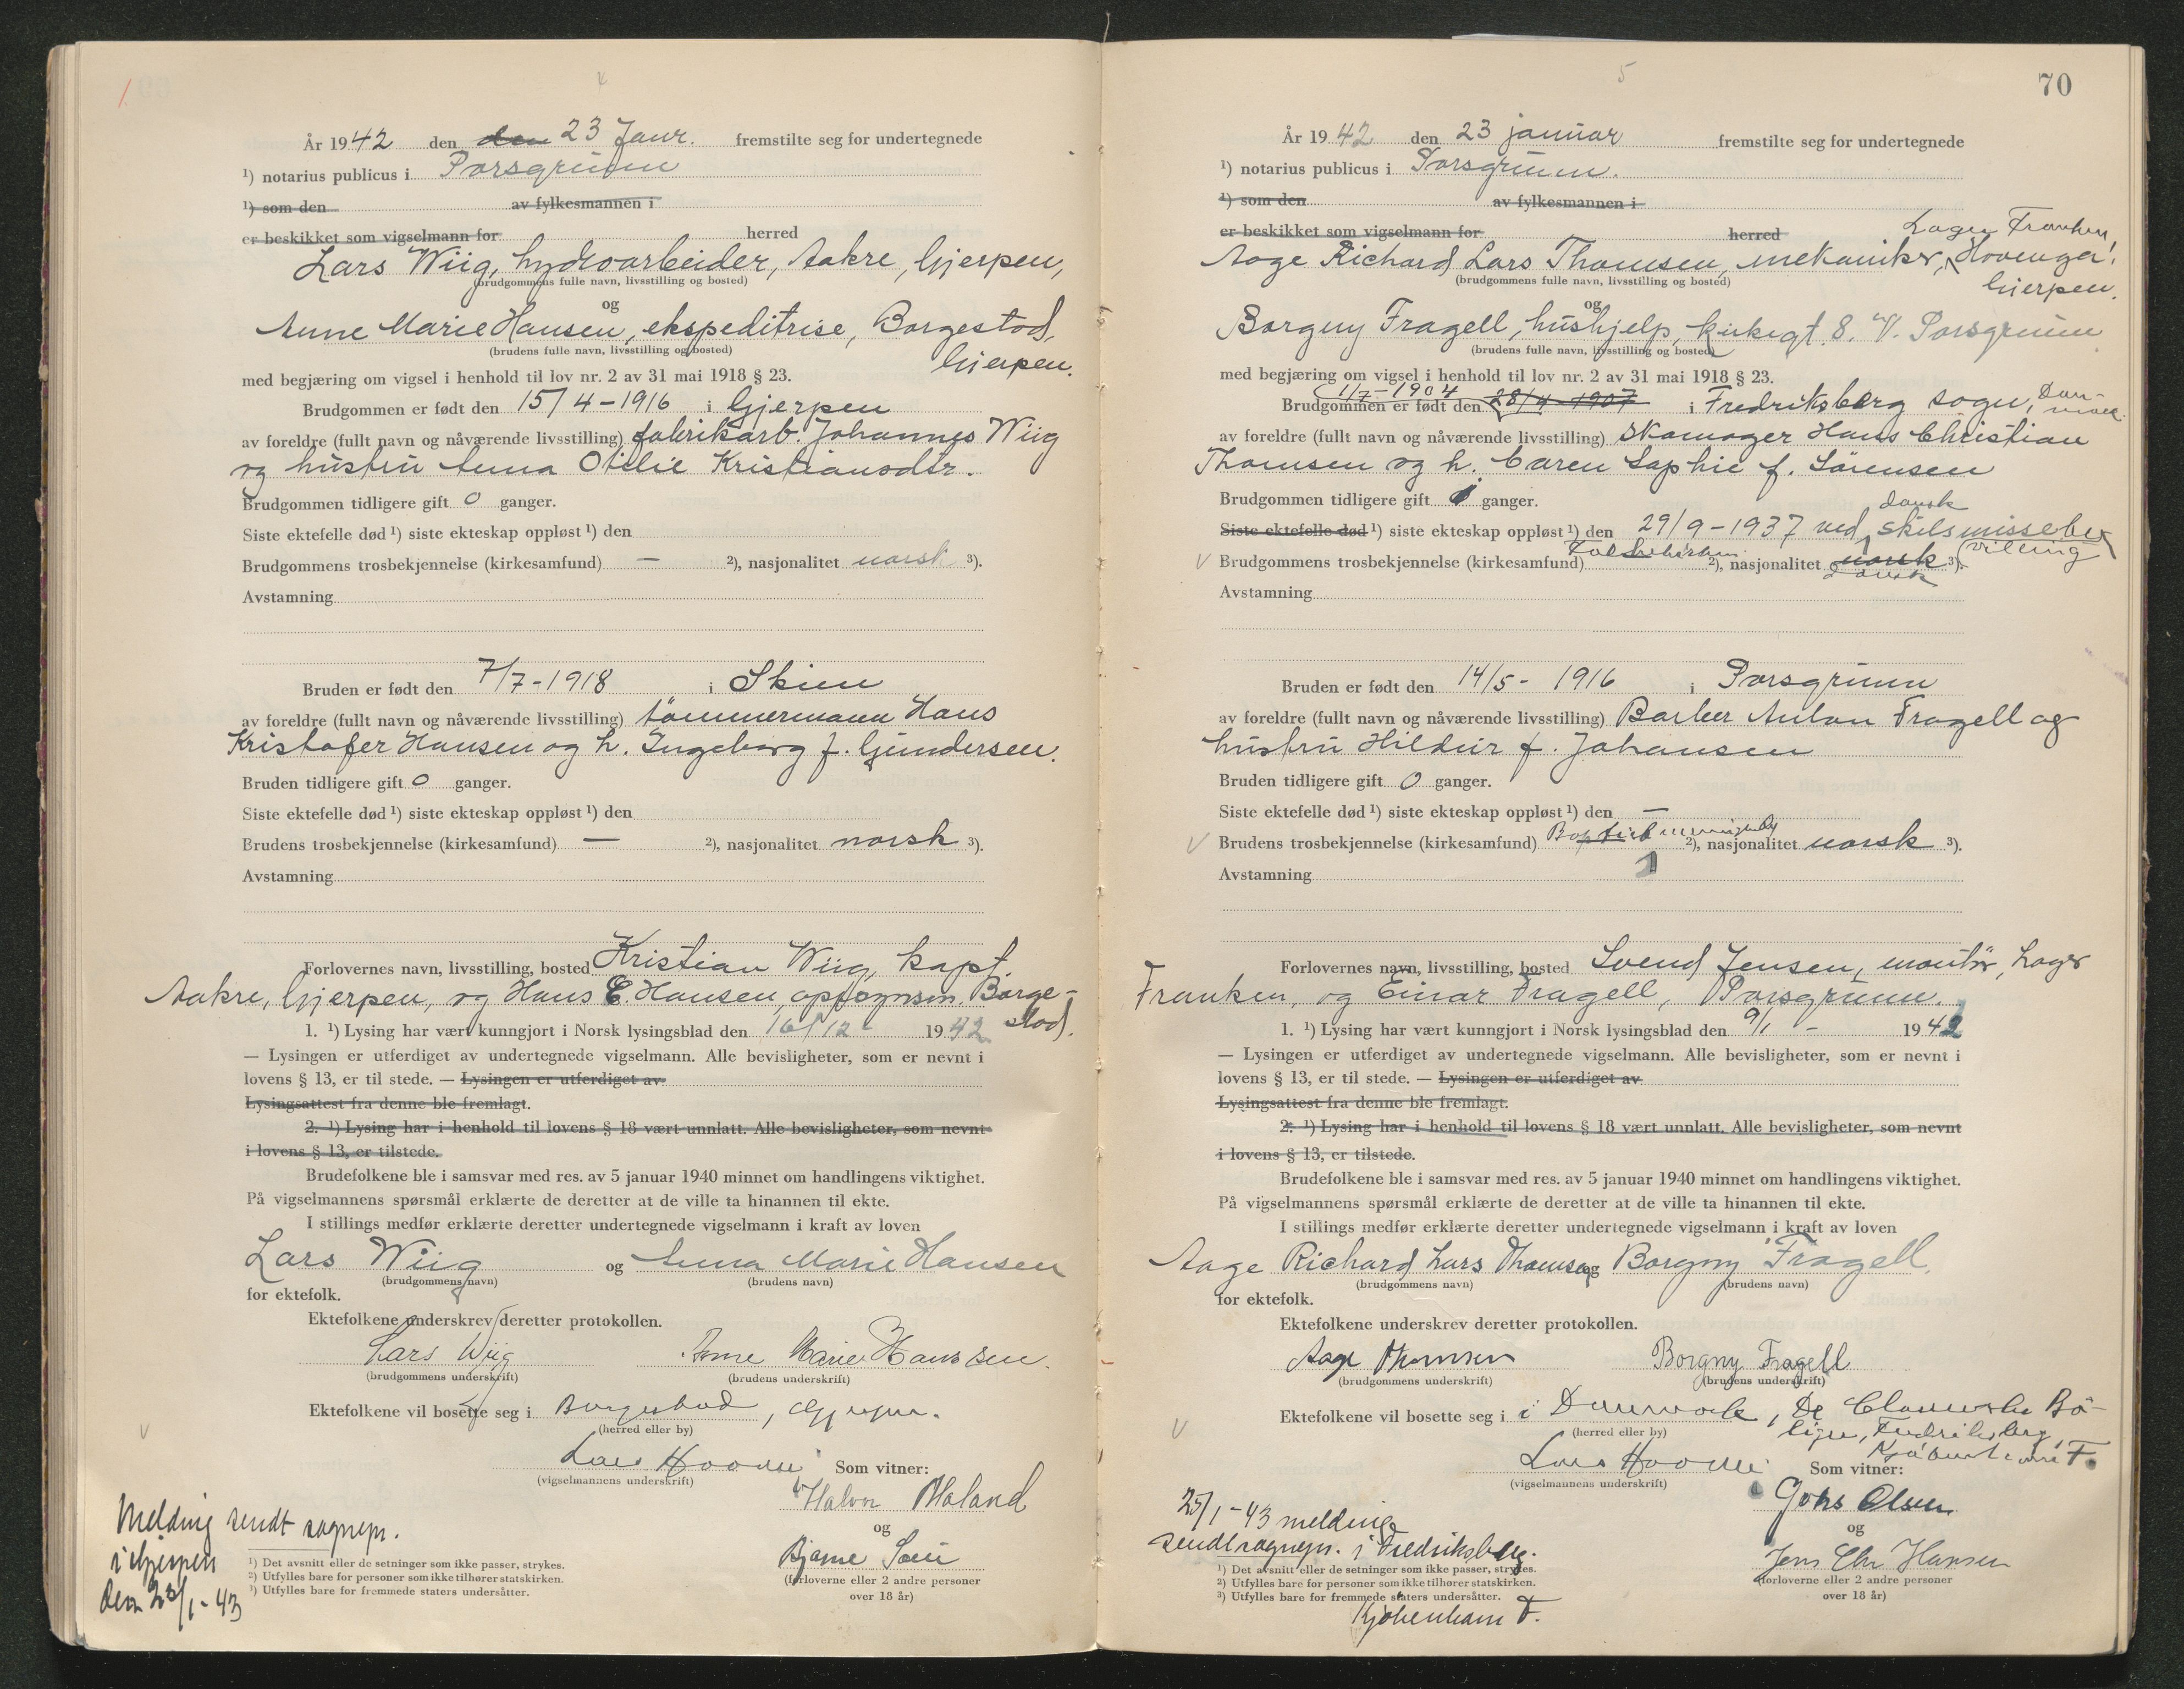 1.
År 1942 den den 23 Janr. fremstilte seg for undertegnede
¹) notarius publicus i Porsgrunn
¹) som den av fylkesmannen i
er beskikket som vigselmann for herred
Lars Wiig, hydroarbeider, Aakre, Gjerpen,
(brudgommens fulle navn, livsstilling og bosted)
og
Anne Marie Hansen, ekspeditrise, Borgestad,
(brudens fulle navn, livsstilling og bosted)
Gjerpen.
med begjæring om vigsel i henhold til lov nr. 2 av 31 mai 1918 § 23.
Brudgommen er født den 15/4-1916 i Gjerpen
av foreldre (fullt navn og nåværende livsstilling) fabrikarb. Johannes Wiig
og hustru Anna Otilie Kristiansdtr.
Brudgommen tidligere gift 0 ganger.
Siste ektefelle død ¹) siste ekteskap oppløst ¹) den
Brudgommens trosbekjennelse (kirkesamfund) — ²), nasjonalitet norsk ³).
Avstamning
Bruden er født den 7/7-1918 i Skien
av foreldre (fullt navn og nåværende livsstilling) tømmermann Hans
Kristofer Hansen og h. Ingeborg f. Gundersen.
Bruden tidligere gift 0 ganger.
Siste ektefelle død ¹) siste ekteskap oppløst ¹) den
Brudens trosbekjennelse (kirkesamfund) — ²), nasjonalitet norsk ³).
Avstamning
Forlovernes navn, livsstilling, bosted Kristian Wiig, kapt.
Aakre, Gjerpen, og Hans C. Hansen, oppsynsm. Borge-
stad.
1. ¹) Lysing har vært kunngjort i Norsk lysingsblad den 16/12- 1942
— Lysingen er utferdiget av undertegnede vigselmann. Alle bevisligheter, som er nevnt i
lovens § 13, er til stede. — Lysingen er utferdiget av
Lysingsattest fra denne ble fremlagt.
2. ¹) Lysing har i henhold til lovens § 18 vært unnlatt. Alle bevisligheter, som nevnt
i lovens § 13, er tilstede.
Brudefolkene ble i samsvar med res. av 5 januar 1940 minnet om handlingens viktighet.
På vigselmannens spørsmål erklærte de deretter at de ville ta hinannen til ekte.
I stillings medfør erklærte deretter undertegnede vigselmann i kraft av loven
Lars Wiig og Anna Marie Hansen
(brudgommens navn) (brudens navn)
for ektefolk.
Ektefolkene underskrev deretter protokollen.
Lars Wiig Anne Marie Hanssen.
(brudgommens underskrift) (brudens underskrift)
Ektefolkene vil bosette seg i Borgestad, Gjerpen.
(herred eller by)
Som vitner:
(vigselmannens underskrift)
Halvor
og
Bjarne
(forloverne eller 2 andre personer
over 18 år)
Melding sendt sognepr.
i Gjerpen
den 23/1-43
¹) Det avsnitt eller de setninger som ikke passer, strykes.
²) Utfylles bare for personer som ikke tilhører statskirken.
³) Utfylles bare for fremmede staters undersåtter.
5
70
År 1942 den 23 januar fremstilte seg for undertegnede
¹) notarius publicus i Porsgrunn.
¹) som den av fylkesmannen i
er beskikket som vigselmann for herred
Lager Franken,
Aage Richard Lars Thomsen, mekaniker, Hovenga,
(brudgommens fulle navn, livsstilling og bosted)
Gjerpen.
og
Borgny Fragell, hushjelp, kirkegt. 8. V. Porsgrunn
(brudens fulle navn, livsstilling og bosted)
med begjæring om vigsel i henhold til lov nr. 2 av 31 mai 1918 § 23.
1/7-1904
Brudgommen er født den 28/4-1907 i Fredriksberg sogn, Dan-
mark.
av foreldre (fullt navn og nåværende livsstilling) skomager Hans Christian
Thomsen og h. Caren Sophie f. Sørensen
Brudgommen tidligere gift 1 ganger.
dansk
Siste ektefelle død ¹) siste ekteskap oppløst ¹) den 29/9-1937 ved skilsmissebe
villing
Folkekirken
Brudgommens trosbekjennelse (kirkesamfund) ²), nasjonalitet norsk ³).
dansk
Avstamning
Bruden er født den 14/5- 1916 i Porsgrunn
av foreldre (fullt navn og nåværende livsstilling) Barber Anton Fragell og
hustru Hildur f. Johansen
Bruden tidligere gift 0 ganger.
Siste ektefelle død ¹) siste ekteskap oppløst ¹) den —
Brudens trosbekjennelse (kirkesamfund) Baptistmenighet ²), nasjonalitet norsk ³).
Avstamning
Forlovernes navn, livsstilling, bosted Svend Jensen, montør, Lager
Franken, og Einar Fragell, Porsgrunn.
1. ¹) Lysing har vært kunngjort i Norsk lysingsblad den 9/1 - 1942
— Lysingen er utferdiget av undertegnede vigselmann. Alle bevisligheter, som er nevnt i
lovens § 13, er til stede. — Lysingen er utferdiget av
Lysingsattest fra denne ble fremlagt.
2. ¹) Lysing har i henhold til lovens § 18 vært unnlatt. Alle bevisligheter, som nevnt
i lovens § 13, er tilstede.
Brudefolkene ble i samsvar med res. av 5 januar 1940 minnet om handlingens viktighet.
På vigselmannens spørsmål erklærte de deretter at de ville ta hinannen til ekte.
I stillings medfør erklærte deretter undertegnede vigselmann i kraft av loven
Aage Richard Lars Thomsen og Borgny Fragell.
(brudgommens navn) (brudens navn)
for ektefolk.
Ektefolkene underskrev deretter protokollen.
Aage Thomsen Borgny Fragell
(brudgommens underskrift) (brudens underskrift)
Ektefolkene vil bosette seg i i Danmark, De Bo-
(herred eller by)
liger, Fredriksberg,
Kjøbenhavn F.
Som vitner:
(vigselmannens underskrift)
Johs Olsen
og
Jens Chr Hansen
(forloverne eller 2 andre personer
over 18 år)
25/1-43 melding
sendt sognepr. i Fredriksberg.
¹) Det avsnitt eller de setninger som ikke passer, strykes.
²) Utfylles bare for personer som ikke tilhører statskirken.
³) Utfylles bare for fremmede staters undersåtter.
Kjøbenhavn F.